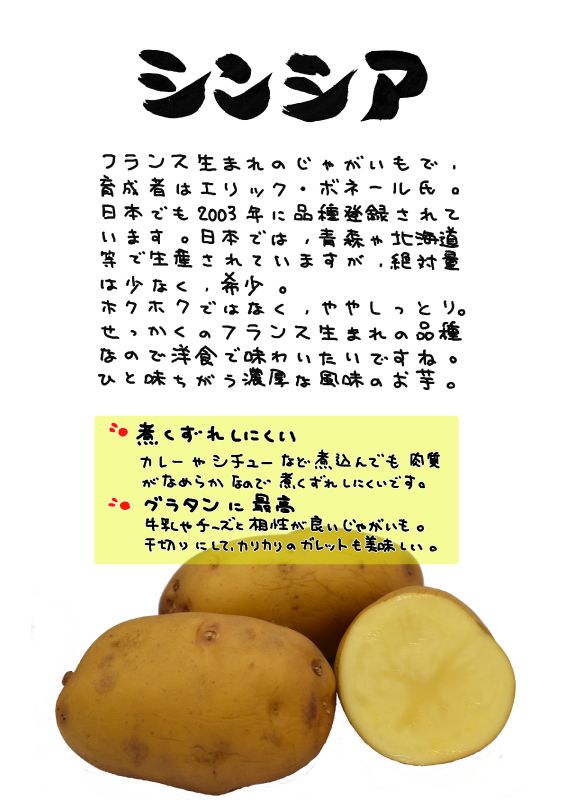 シンシア
フランス生まれのじゃがいもで,
育成者はエリック・ボネール氏。
日本でも2003年に品種登録されて
います。日本では,青森や北海道
等で生産されていますが,絶対量
は少なく,希少。
ホクホクではなく,ややしっとり。
せっかくのフランス生まれの品種
なので洋食で味わいたいですね。
ひと味ちがう濃厚な風味のお芋。
煮くずれしにくい
カレーやシチューなど煮込んでも肉質
がなめらかなので煮くずれしにくいです。
グラタンに最高
牛乳やチーズと相性が良いじゃがいも。
千切りにして,カリカリのガレットも美味しい。